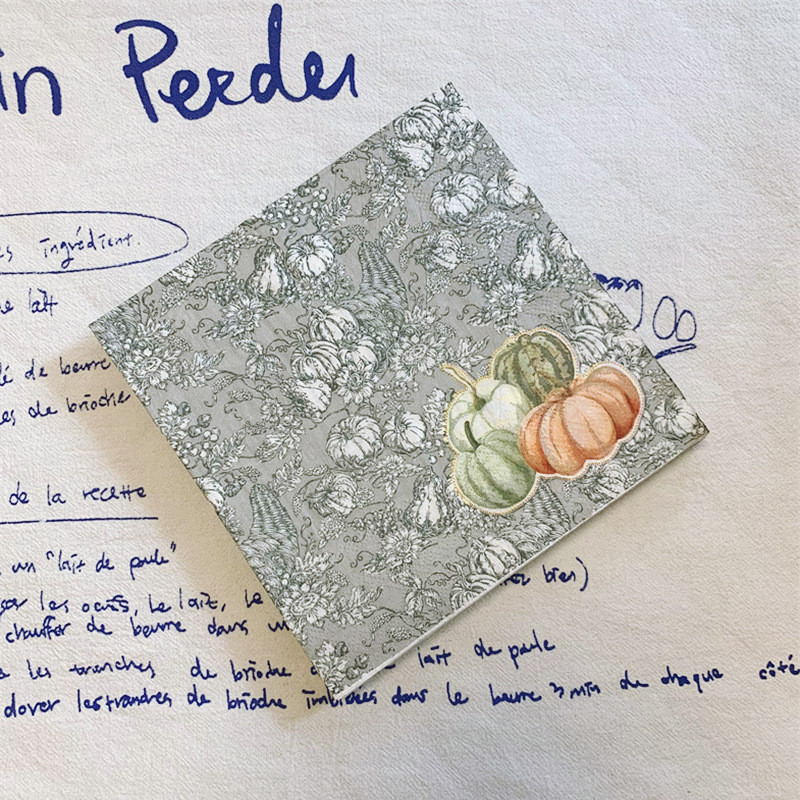 in Perdu
es ingrédient.
e lait
é de beurre
es de brioche
de la recette
un "lait de poule"
les oeufs, Le lait, Le
bien)
chauffer de beurre dans un
les tranches de brioche lait de poule
dorer les tranches de brioche imbibées dans le beurre 3 min de chaque côté